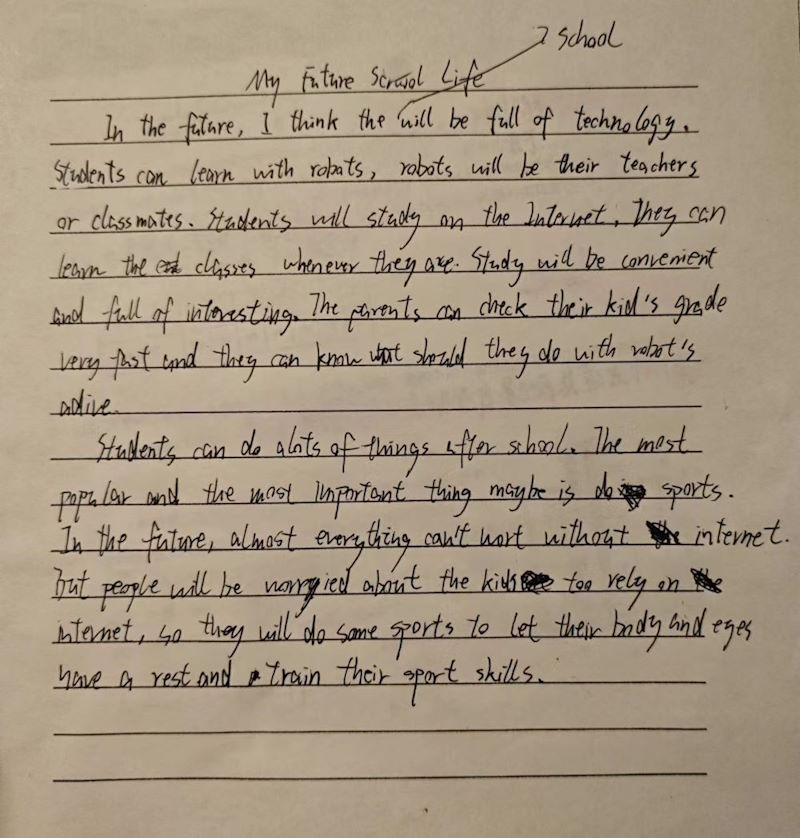 school
My Future School Life
In the future, I think the will be full of technology.
Students can learn with robats, robots will be their teachers
or classmates. Students will study on the Internet. They can
learn the classes whenever they are. Study will be convenient
and full of interesting. The parents can check their kid's grade
very fast and they can know what should they do with robot's
adive.
Students can do alots of things after school. The most
popular and the most important thing maybe is do sports.
In the future, almost everything can't wort without internet.
But people will be worryied about the kids too rely on
internet, so they will do some sports to let their body and eyes
have a rest and train their sport skills.